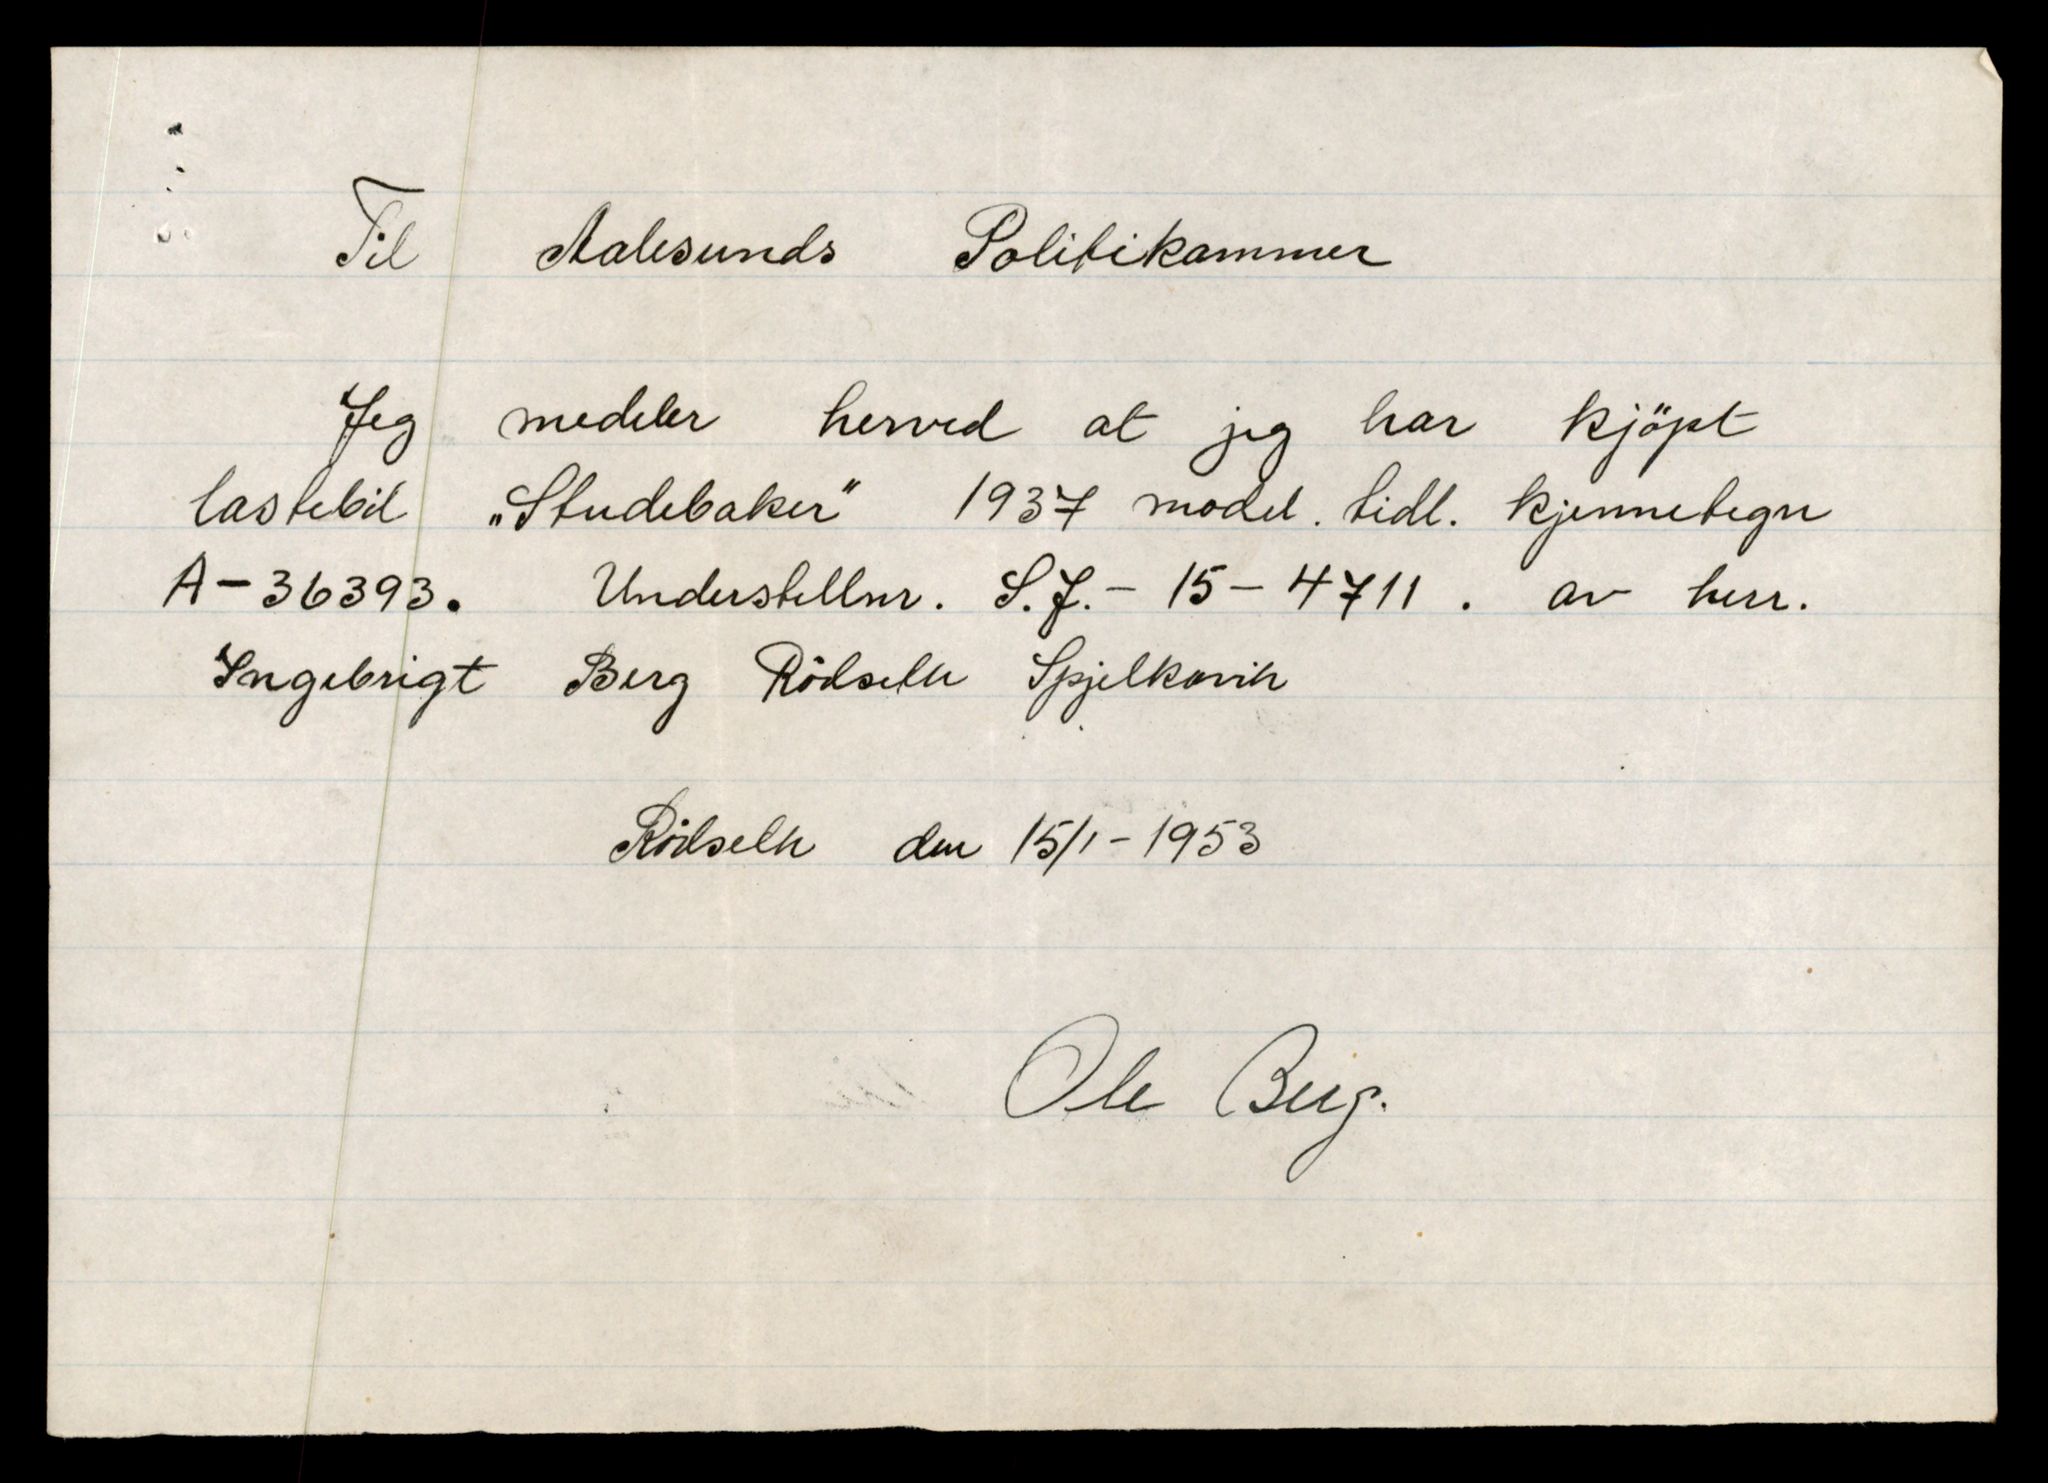 Til Aalesunds Politikammer
Jeg medeler herved at jeg har kjöpt
lastebil „Studebaker" 1937 model. tidl. kjennetegn
A-36393. Understellnr. S.J.- 15-4711. av herr.
Ingebrigt Berg Rödseth Spjelkavik
Rödseth den 15/1-1953
Ole Berg.